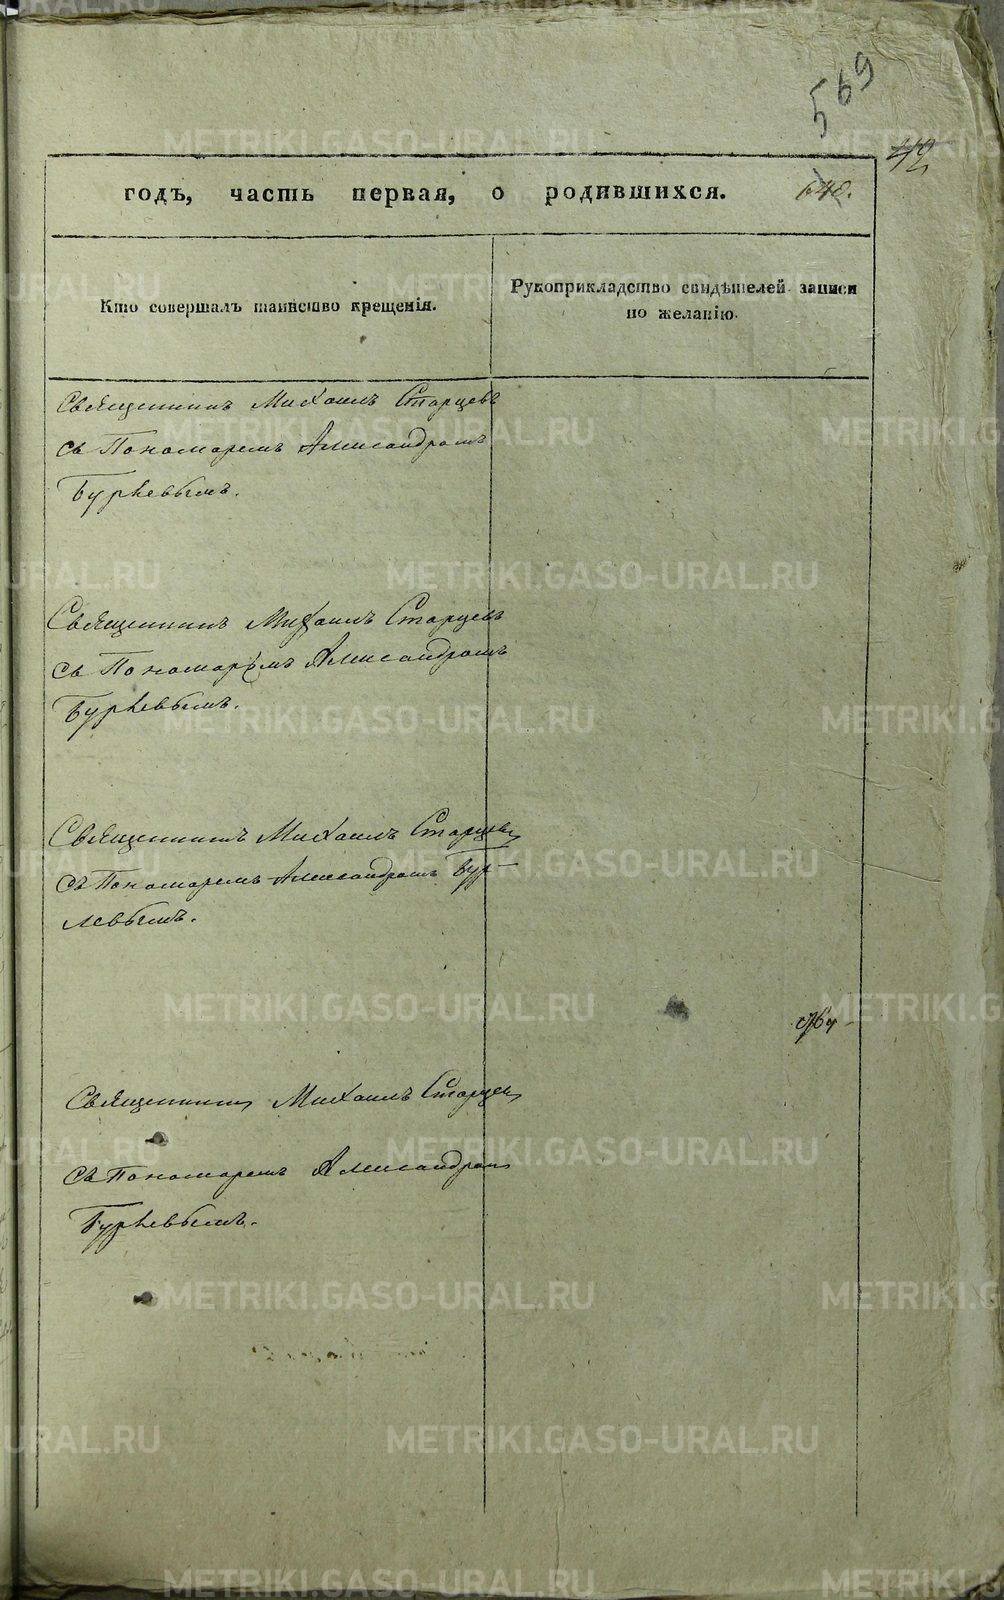 569
42
годъ, часть первая, о родившихся.
640.
Кто совершалъ таинство крещенія.
Рукоприкладство свидѣтелей записи
по желанію.
Священникъ Михаилъ Старцевъ
съ Пономаремъ Александромъ
Бурлевымъ.
Священникъ Михаилъ Старцевъ
съ Пономаремъ Александромъ
Бурлевымъ.
Священникъ Михаилъ Старцевъ
съ Пономаремъ Александромъ Бур-
левымъ.
Священникъ Михаилъ Старцевъ
съ Пономаремъ Александромъ
Бурлевымъ.
METRIKI.GASO-URAL.RU